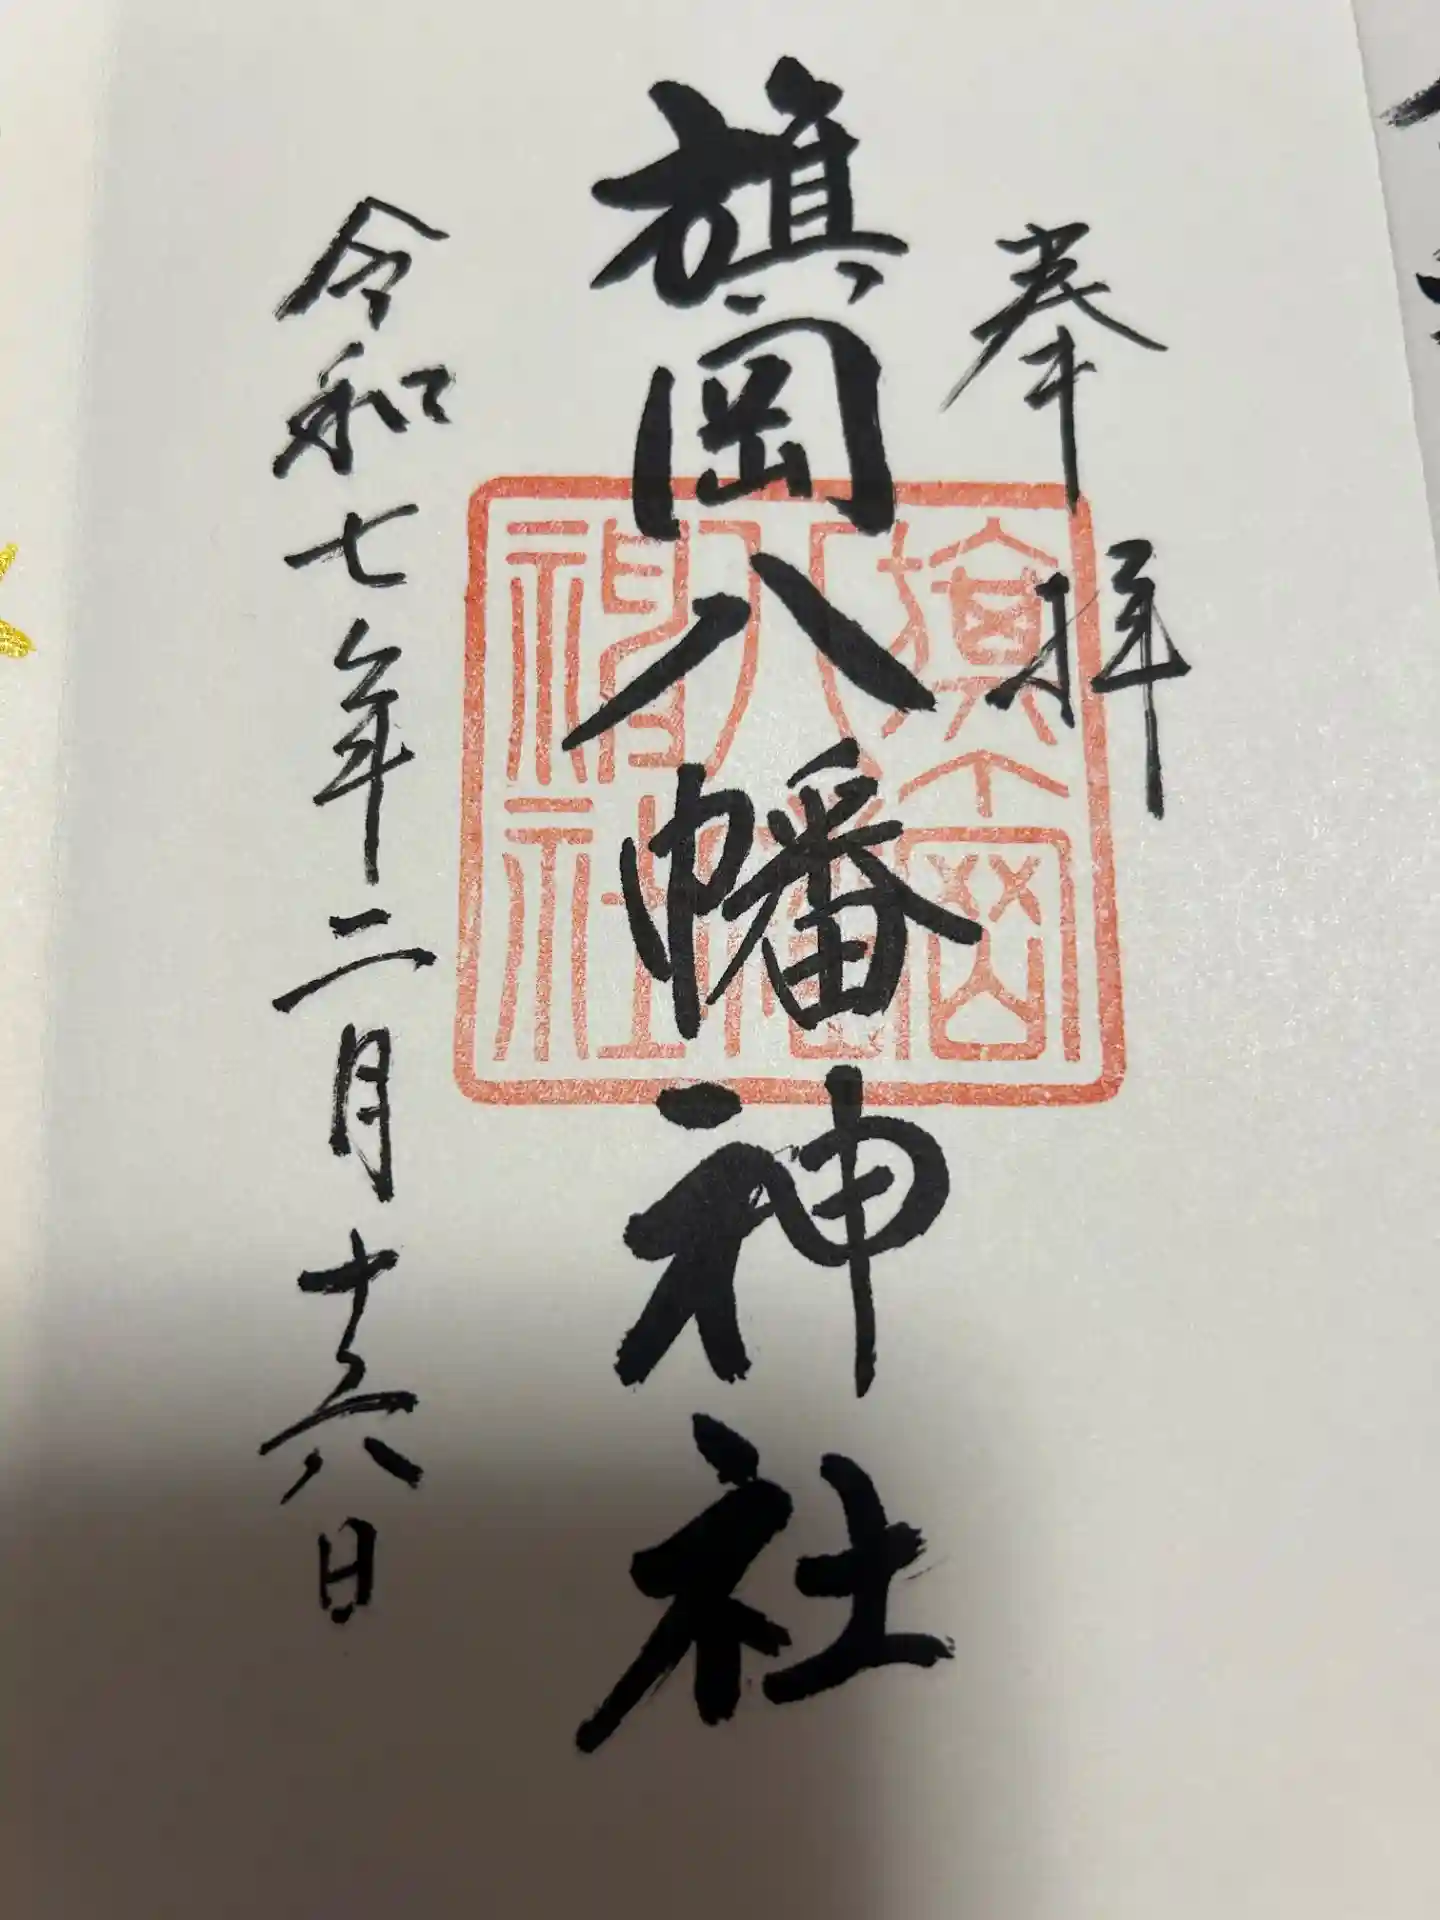 奉拝
旗岡八幡神社
旗岡
八幡
神社
令和七年二月十六日